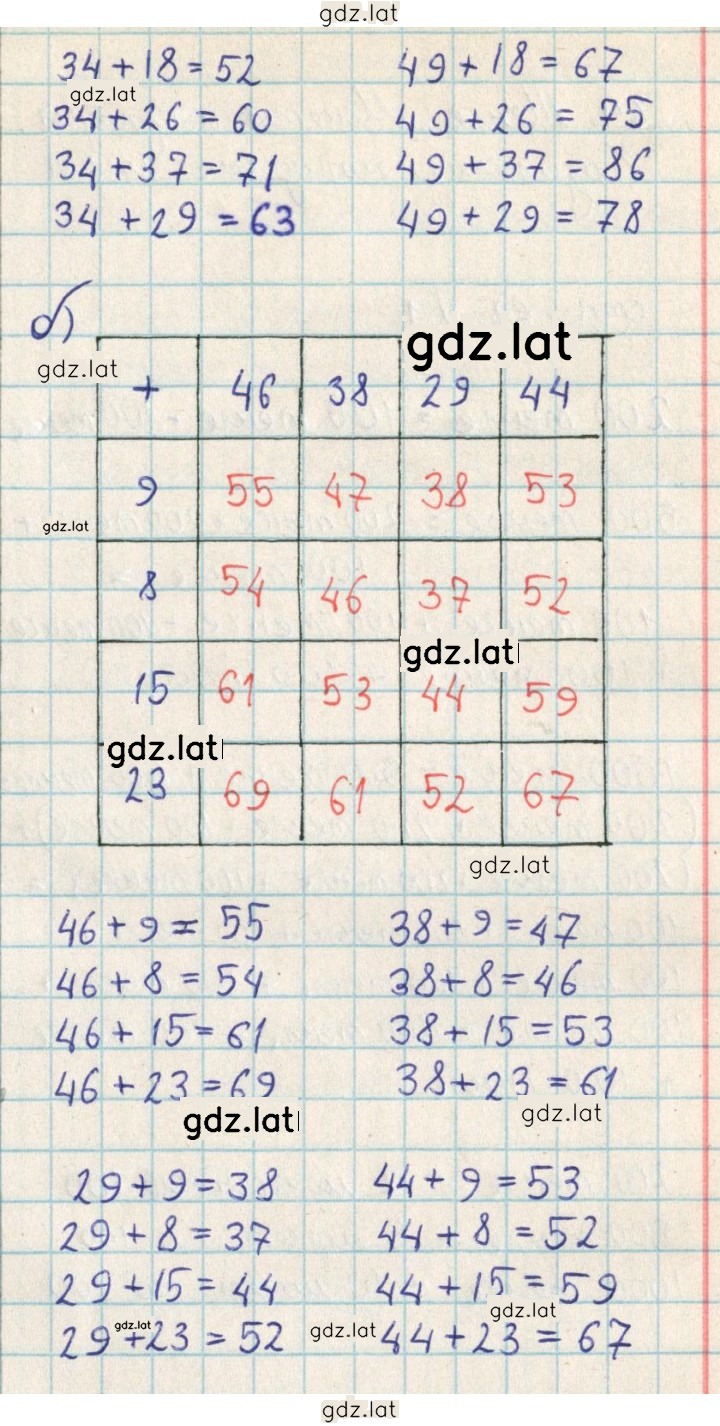 gdz.lat
34+18=52 49+18=67
gdz.lat
34+26=60 49+26=75
34+37=71 49+37=86
34+29=63 49+29=78
б)
gdz.lat
gdz.lat
+ 46 38 29 44
9 55 47 38 53
gdz.lat
8 54 46 37 52
gdz.lat
15 61 53 44 59
gdz.lat
23 69 61 52 67
gdz.lat
46+9=55 38+9=47
46+8=54 38+8=46
46+15=61 38+15=53
46+23=69 38+23=61
gdz.lat gdz.lat
29+9=38 44+9=53
29+8=37 44+8=52
29+15=44 44+15=59
gdz.lat
gdz.lat gdz.lat
29+23=52 44+23=67
gdz.lat